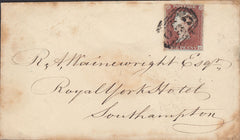 R. A. Wainewright Esqr.
Royal York Hotel
Southampton